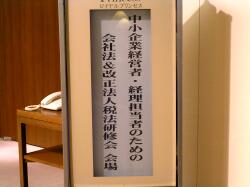 ロイヤルプリンセス
中小企業経営者・経理担当者のための
会社法&改正法人税法研修会 会場